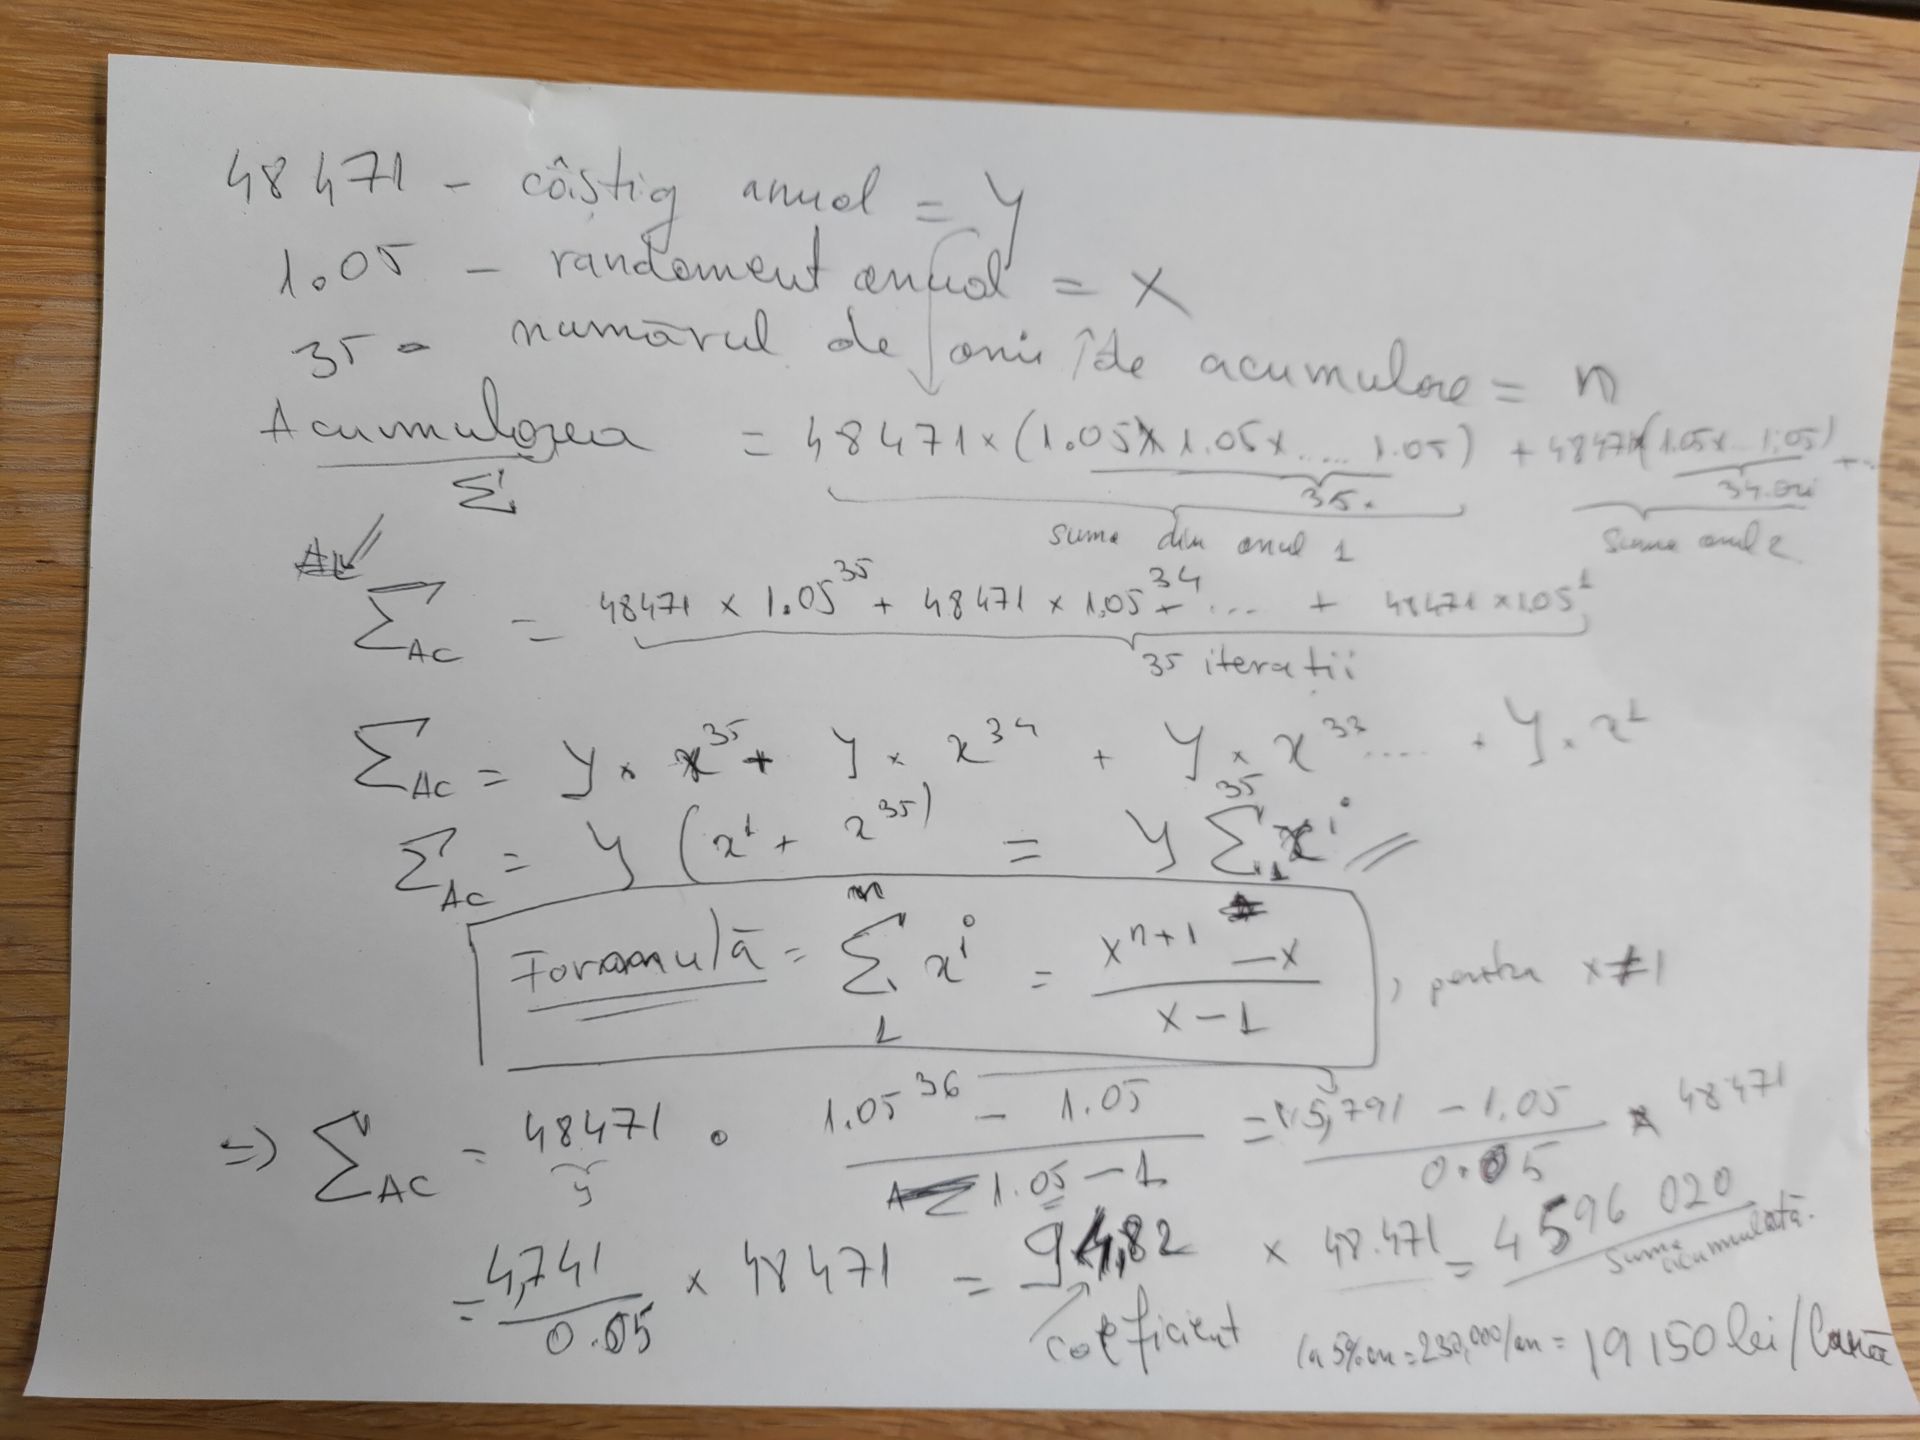 48471 - câștig anual = y
1.05 - randament anual = x
35 - numărul de ani de acumulare = n
Acumularea = 48471 × (1.05 × 1.05 × .... 1.05) + 48471 × (1.05 × ... 1.05) + ...
35. 34 ori
Σ suma din anul 1 suma anul 2
Σ AC = 48471 × 1.05^35 + 48471 × 1.05^34 + ... + 48471 × 1.05^1
35 iterații
Σ AC = y × x^35 + y × x^34 + y × x^33 .... + y · x^1
Σ AC = y (x^1 + x^35) = y Σ_1^35 x^i
Formulă = Σ_1^n x^i = (x^(n+1) - x) / (x - 1), pentru x ≠ 1
=> Σ AC = 48471 · (1.05^36 - 1.05) / (1.05 - 1) = (5,791 - 1.05) / 0.05 × 48471
y
= 4,741 / 0.05 × 48471 = 94,82 × 48.471 = 4 596 020
coeficient suma acumulată.
la 5%/an = 230,000/an = 19 150 lei / lună